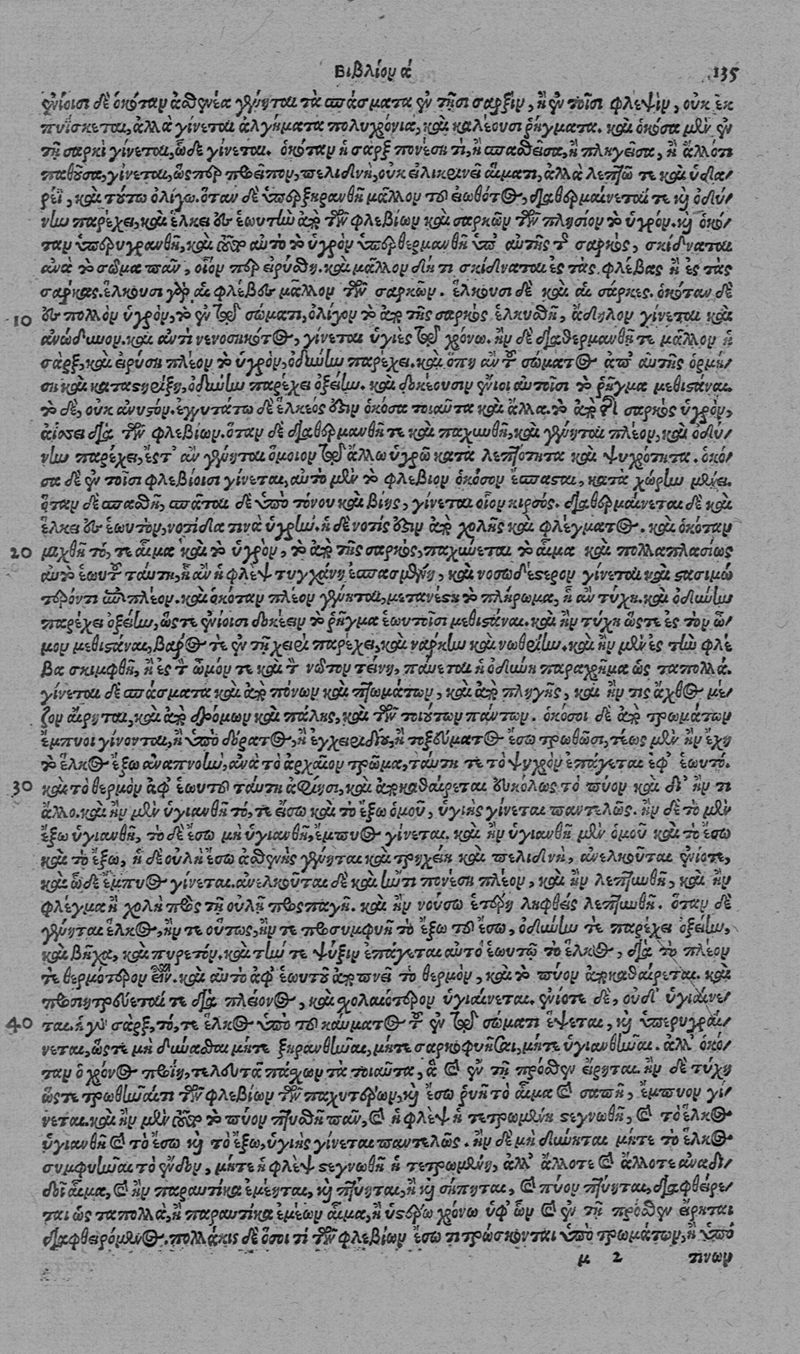 Βιβλίον ά 135
ἐνίοισι δὲ ὁκόταν ἀσθενέα γένηται τὰ σπάσματα ἐν τῇσι σαρξὶν, ἢ ἐν τοῖσι φλεψὶν, οὐκ ἐκ
πυΐσκεται, ἀλλὰ γίνεται ἀλγήματα πολυχρόνια, καὶ καλέουσι ῥήγματα. καὶ ὁκόσα μὲν ἐν
τῇ σαρκὶ γίνεται, ὧδε γίνεται. ὁκόταν ἡ σαρξ πονέσῃ τὶ, ἢ σπασθεῖσα, ἢ πληγεῖσα, ἢ ἄλλό τι
παθοῦσα, γίνεται, ὥσπερ προεῖπον, πελιδνὴ, οὐκ εἰλικρινέϊ αἵματι, ἀλλὰ λεπτῷ τε καὶ ὑδα/
ρέϊ, καὶ τούτῳ ὀλίγῳ. ὅταν δὲ ὑπερξηρανθῇ μᾶλλον τοῦ ἐωθότος, διαθερμαίνεταί τε κὶ ὀδύ/
νην παρέχει, καὶ ἕλκει εἰς ἑωυτὴν ἀπὸ τῶν φλεβίων καὶ σαρκῶν τῶν πλησίον τὸ ὑγρὸν. κὶ ὁκό/
ταν ὑπερυγρανθῇ, καὶ τοῦτο αὐτὸ τὸ ὑγρὸν ὑπερθερμανθῇ ὑπ' αὐτῆς τῆς σαρκὸς, σκίδναται
ἀνὰ τὸ σῶμα πᾶν, οἷον περ εἰρύσθη. καὶ μᾶλλον δή τι σκίδναται ἐς τὰς φλέβας ἢ ἐς τὰς
σάρκας. ἕλκουσι γὰρ αἱ φλέβες μᾶλλον τῶν σαρκῶν. ἕλκουσι δὲ καὶ αἱ σάρκες. ὁκόταν δὲ
10 ἐς πολλὸν ὑγρὸν, τὸ ἐν τῷ σώματι, ὀλίγον τὸ ἀπὸ τῆς σαρκὸς ἑλκυσθῇ, ἄδηλον γίνεται καὶ
ἀνώδυνον. καὶ ἀντὶ νενοσηκότος, γίνεται ὑγιὲς τῷ χρόνῳ. ἢν δὲ διαθερμανθῇ τε μᾶλλον ἡ
σάρξ, καὶ εἰρύσῃ πλέον τὸ ὑγρὸν, ὀδύνην παρέχει. καὶ ὅπη ἂν τοῦ σώματος ἀπ' αὐτῆς ὁρμή/
σῃ καὶ καταστηρίξῃ, ὀδύνην παρέχει ὀξείην. καὶ δοκέουσιν ἔνιοι αὐτοῖσι τὸ ῥῆγμα μεθιστάναι.
τὸ δὲ, οὐκ ἀνυστόν. ἐγγυτάτω δὲ ἕλκεός ἐστιν ὁκόσα τοιαῦτα καὶ ἄλλα. τὸ ἀπὸ τῆς σαρκὸς ὑγρὸν,
ἀΐσσει διὰ τῶν φλεβίων. ὅταν δὲ διαθερμανθῇ τε καὶ παχυνθῇ, καὶ γένηται πλέον, καὶ ὀδύ/
νην παρέχει, ἔστ' ἂν γένηται ὅμοιον τῷ ἄλλῳ ὑγρῷ κατὰ λεπτότητα καὶ ψυχρότητα. ὁκό/
σα δὲ ἐν τοῖσι φλεβίοισι γίνεται, αὐτὸ μὲν τὸ φλέβιον ὁκόσον ἔσπασται, κατὰ χώρην μένει.
ὅταν δὲ σπασθῇ, σπᾶται δὲ ὑπὸ τόνου καὶ βίης, γίνεται οἷον κιρσός. διαθερμαίνεται δὲ καὶ
ἕλκει ἐς ἑωυτὸν, νοτίδα τινὰ ὑγρήν. ἡ δὲ νοτίς ἐστιν ἀπὸ χολῆς καὶ φλέγματος. καὶ ὁκόταν
20 μιχθῇ τό, τε αἷμα καὶ τὸ ὑγρὸν, τὸ ἀπὸ τῆς σαρκὸς, παχύνεται τὸ αἷμα καὶ πολλαπλασίως
αὐτὸ ἑωυτοῦ ταύτῃ, ᾗ ἂν ἡ φλεψ τυγχάνῃ ἐσπασμένη, καὶ νοσωδέστερον γίνεται καὶ στασιμώ
τερόν τι ἅτε πλέον. καὶ ὁκόταν πλέον γένηται, μετανέστη τὸ πλήρωμα, ᾗ ἂν τύχῃ. καὶ ὀδύνην
παρέχει ὀξείην, ὥστε ἐνίοισι δοκέειν τὸ ῥῆγμα ἑωυτοῖσι μεθιστάναι. καὶ ἢν τύχῃ ὥστε ἐς τὸν ὦ/
μον μεθιστάναι, βάρος τε ἐν τῇ χειρὶ παρέχει, καὶ νάρκην καὶ νωθείην. καὶ ἢν μὲν ἐς τὴν φλέ
βα σκιμφθῇ, ἢ ἐς τὸν ὦμόν τε καὶ τὸν νῶτον τείνῃ, παύεται ἡ ὀδύνη παραχρῆμα ὡς ταπολλά.
γίνεται δὲ σπάσματα καὶ ἀπὸ πόνων καὶ πτωμάτων, καὶ ἀπὸ πληγῆς, καὶ ἤν τις ἄχθος μέ/
ζον αἴρηται, καὶ ἀπὸ δρόμων καὶ πάλης, καὶ τῶν τοιούτων πάντων. ὁκόσοι δὲ ἀπὸ τρωμάτων
ἔμπυοι γίνονται, ἢν ὑπὸ δόρατος, ἢ ἐγχειριδίου, ἢ τοξεύματος ἔσω τρωθῶσι, τέως μὲν ἢν ἔχῃ
τὸ ἕλκος ἔξω ἀναπνοὴν, ἀνὰ τὸ ἀρχαῖον τρῶμα, ταύτῃ τε τὸ ψυχρὸν ἐπάγεται ἐφ' ἑωυτό.
30 καὶ τὸ θερμὸν ἀφ' ἑωυτοῦ ταύτῃ ἀφίησι, καὶ ἀποκαθαίρεται εὐκόλως τὸ πύον καὶ δι' ἤν τι
ἄλλο. καὶ ἢν μὲν ὑγιανθῇ τό, τε ἔσω καὶ τὸ ἔξω ὁμοῦ, ὑγιὴς γίνεται παντελῶς. ἢν δὲ τὸ μὲν
ἔξω ὑγιανθῇ, τὸ δὲ ἔσω μὴ ὑγιανθῇ, ἔμπυος γίνεται. καὶ ἢν ὑγιανθῇ μὲν ὁμοῦ καὶ τὸ ἔσω
καὶ τὸ ἔξω, ἡ δὲ οὐλὴ ἔσω ἀσθενὴς γένηται καὶ τρηχείη καὶ πελιδνὴ, ἀνελκοῦται ἐνίοτε,
καὶ ὧδε ἔμπυος γίνεται. ἀνελκοῦται δὲ καὶ ἤν τι πονέσῃ πλέον, καὶ ἢν λεπτυνθῇ, καὶ ἢν
φλέγμα ἢ χολὴ πρὸς τῇ οὐλῇ προσπαγῇ. καὶ ἢν νούσῳ ἑτέρῃ ληφθεὶς λεπτυνθῇ. ὅταν δὲ
γένηται ἕλκος, ἤν τε οὕτως, ἤν τε προσυμφυῇ τὸ ἔξω τοῦ ἔσω, ὀδύνην τε παρέχει ὀξείην,
καὶ βῆχα, καὶ πυρετὸν. καὶ τήν τε ψύξιν ἐπάγεται αὐτὸ ἑωυτῷ τὸ ἕλκος, διὰ τὸ πλέον
τε θερμότερον εἶναι. καὶ αὐτὸ ἀφ' ἑωυτοῦ ἀποπνεῖ τὸ θερμὸν, καὶ τὸ πύον ἀποκαθαίρεται. καὶ
προσητρεύεταί τε διὰ πλέονος, καὶ σχολαιότερον ὑγιαίνεται, ἐνίοτε δὲ, οὐδ' ὑγιαίνε/
40 ται. ἡ γὰρ σὰρξ, τό, τε ἕλκος ὑπὸ τοῦ καύματος τοῦ ἐν τῷ σώματι ἕψεται, κὶ ὑπερυγραί/
νεται, ὥστε μὴ δύνασθαι μήτε ξηρανθῆναι, μήτε σαρκοφυῆσαι, μήτε ὑγιανθῆναι. ἀλλ' ὁκό/
ταν ὁ χρόνος προΐῃ, τελευτᾷ πάσχων τὰ τοιαῦτα, ἃ καὶ ἐν τῇ πρόσθεν εἴρηται. ἢν δὲ τύχῃ
ὥστε τρωθῆναί τι τῶν φλεβίων τῶν παχυτέρων, κὶ ἔσω ῥυῇ τὸ αἷμα καὶ σαπῇ, ἔμπυον γί/
νεται. καὶ ἢν μὲν τοῦτο τὸ πύον πτυσθῇ πᾶν, καὶ ἡ φλεψ ἡ τετρωμένη στεγνωθῇ, καὶ τὸ ἕλκος
ὑγιανθῇ καὶ τὸ ἔσω κὶ τὸ ἔξω, ὑγιὴς γίνεται παντελῶς. ἢν δὲ μὴ δύνηται μήτε τὸ ἕλκος
συμφυῆναι τὸ ἔνδον, μήτε ἡ φλεψ στεγνωθῇ ἡ τετρωμένη, ἀλλ' ἄλλοτε καὶ ἄλλοτε ἀναδι/
δοῖ αἷμα, καὶ ἢν παραυτίκα ἐμέηται, κὶ πτύηται, ἢ κὶ σήπηται, καὶ πύον πτύηται, διαφθείρε/
ται ὡς ταπολλὰ, ἢ παραυτίκα ἐμέων αἷμα, ἢ ὑστέρῳ χρόνῳ ὑφ' ὧν καὶ ἐν τῇ πρόσθεν εἴρηται
διαφθειρόμενος. πολλάκις δὲ ὅσοι τὶ τῶν φλεβίων ἔσω τιτρώσκονται ὑπὸ τρωμάτων, ἢ ὑπό
μ 2 τινων